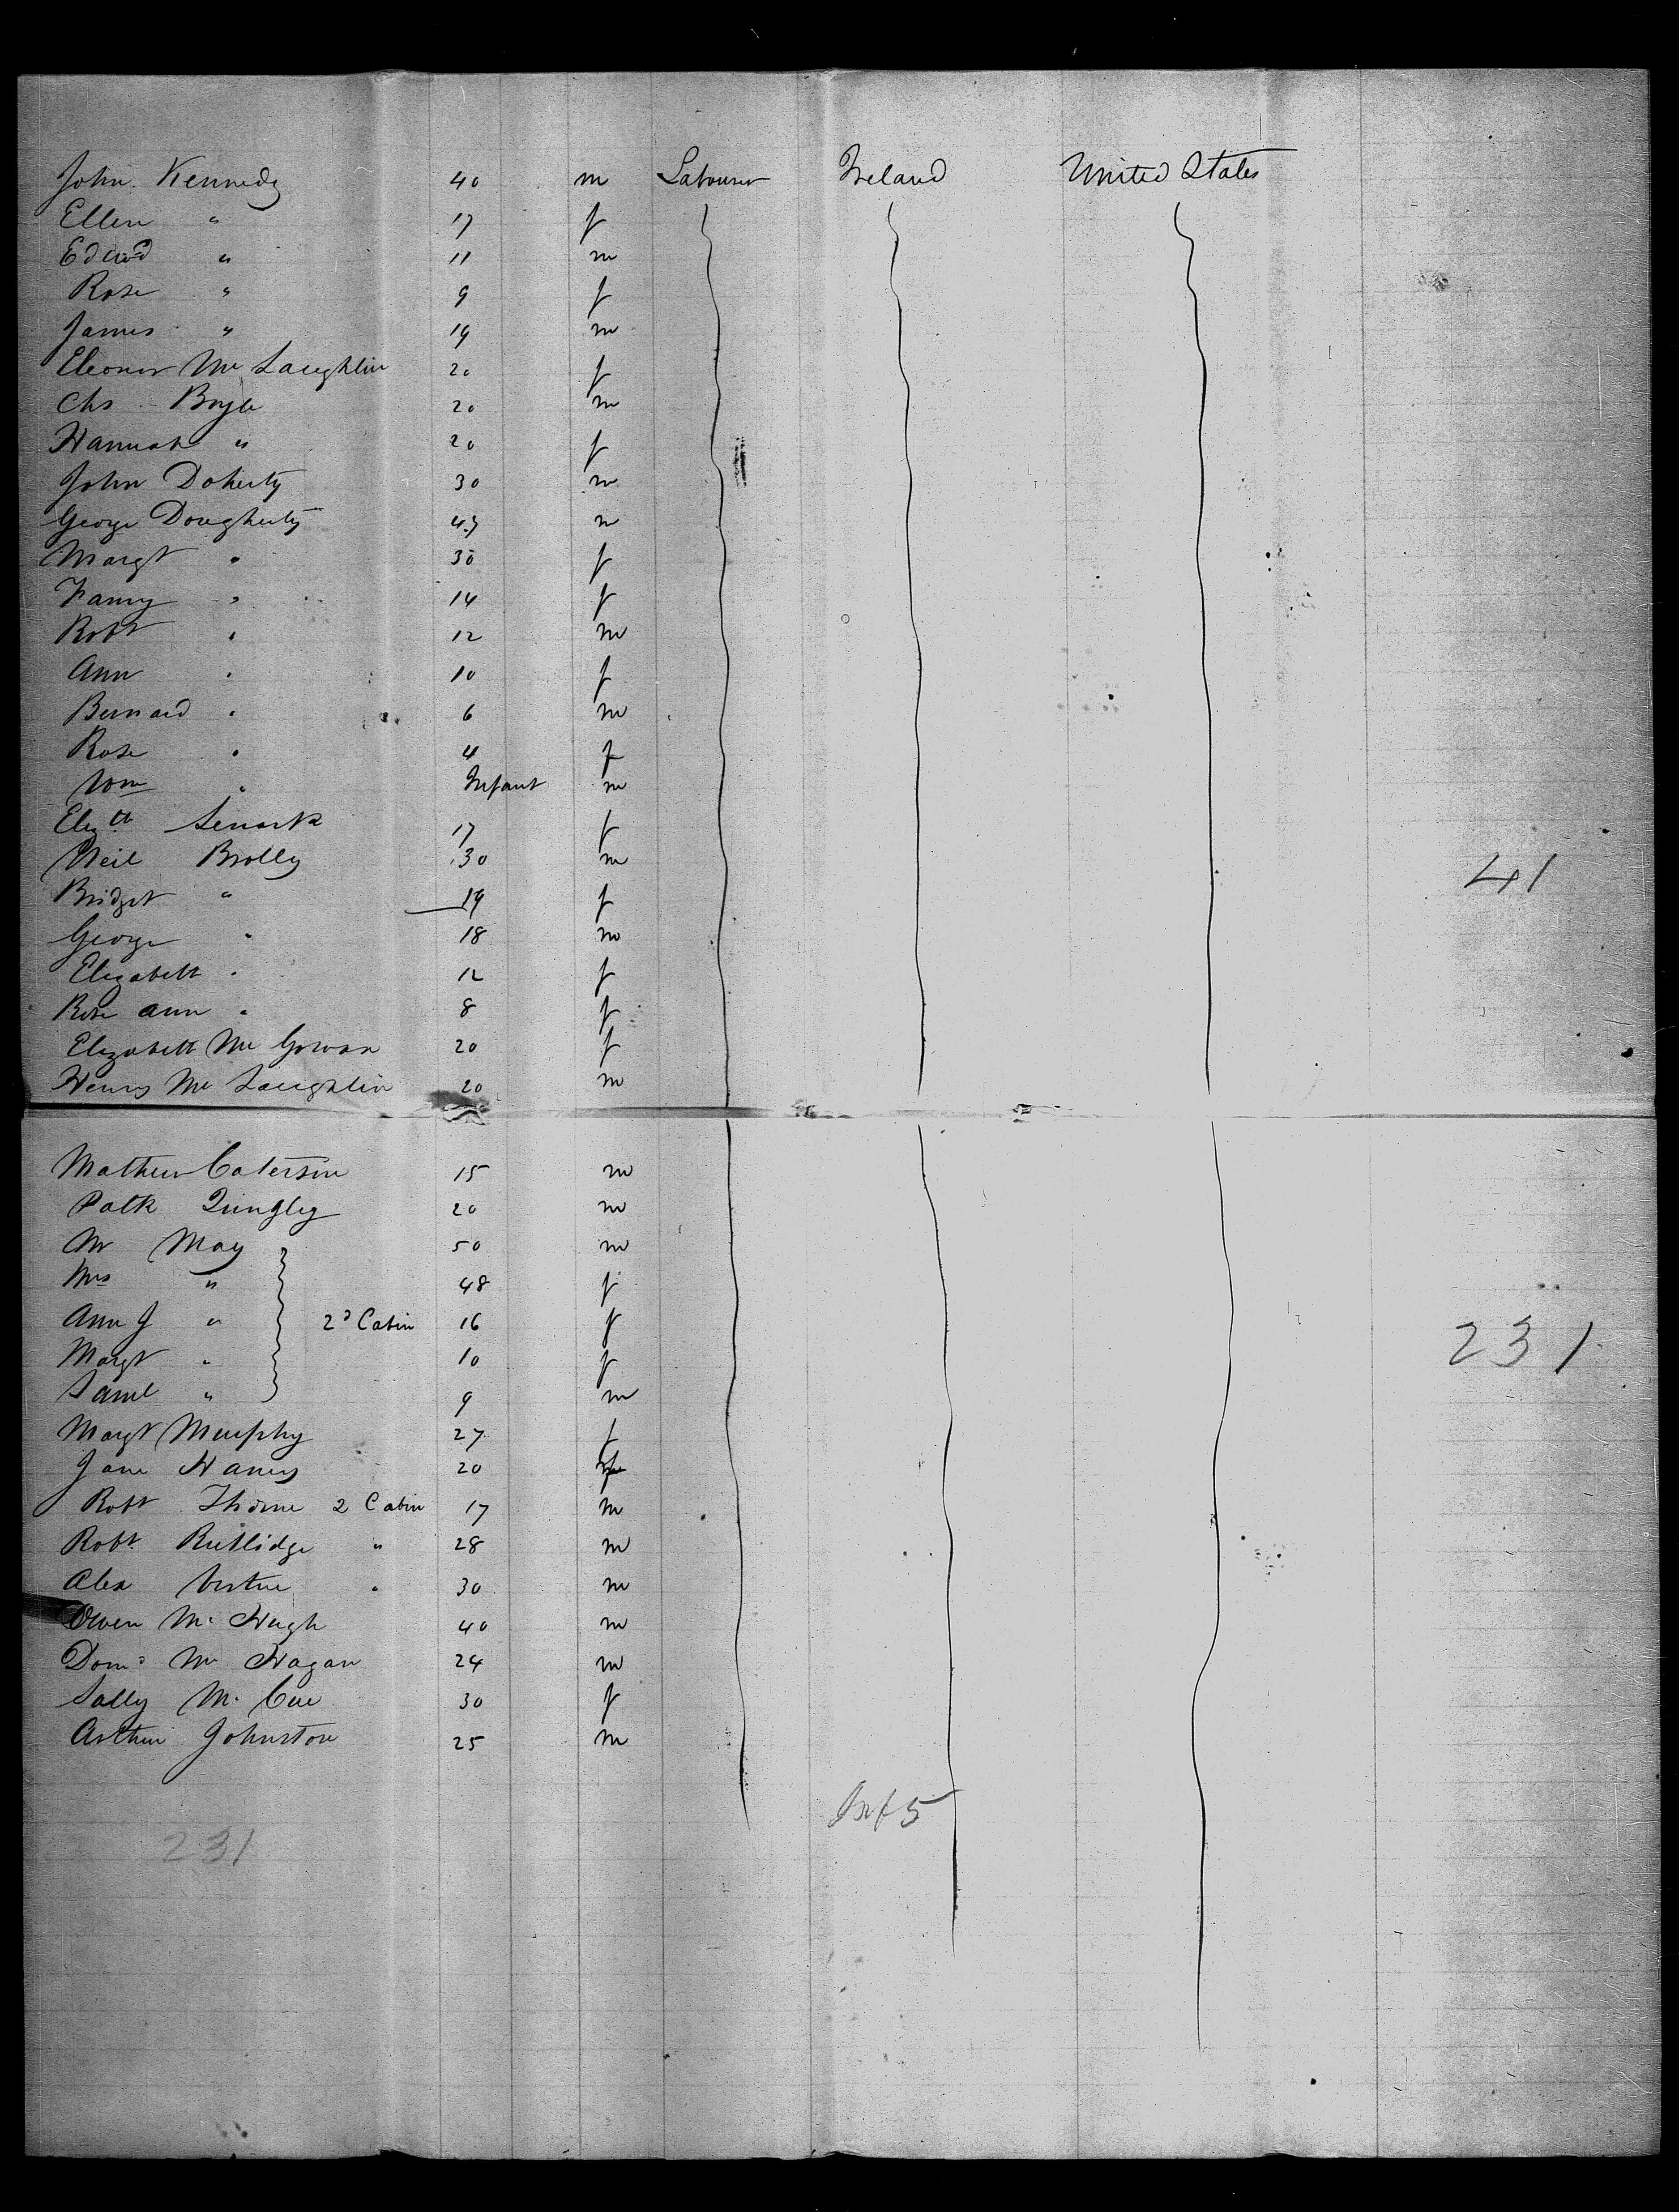 John Kennedy 40 m Labourer Ireland United States
Ellen " 17 f
Edwd " 11 m
Rose " 9 f
James " 19 m
Eleonor Mc Laughlin 20 f
Chs - Boyle 20 m
Hannah " 20 f
John Doherty 30 m
George Dougherty 45 m
Margt " 30 f
Fanny " 14 f
Robt " 12 m
Ann " 10 f
Bernard " 6 m
Rose " 4 f
Wm " Infant m
Elizth 17 f
Neil Brolly 30 m 41
Bridget " 19 f
George " 18 m
Elizabeth " 12 f
Rose ann " 8 f
Elizabeth Mc Gowan 20 f
Henry Mc Laughlin 20 m
Mathew Caterson 15 m
Patk Quigley 20 m
Mr May 50 m
Mrs " 48 f
Ann J " 2d Cabin 16 f 231
Margt " 10 f
Saml " 9 m
Margt Murphy 27 f
Jane Haney 20 f
Robt Thorne 2 Cabin 17 m
Robt Rutlidge " 28 m
Alex Vertue " 30 m
Owen Mc Hugh 40 m
Domk Mc Hagan 24 m
Sally Mc Cue 30 f
Arthur Johnston 25 m
Inf 5
231